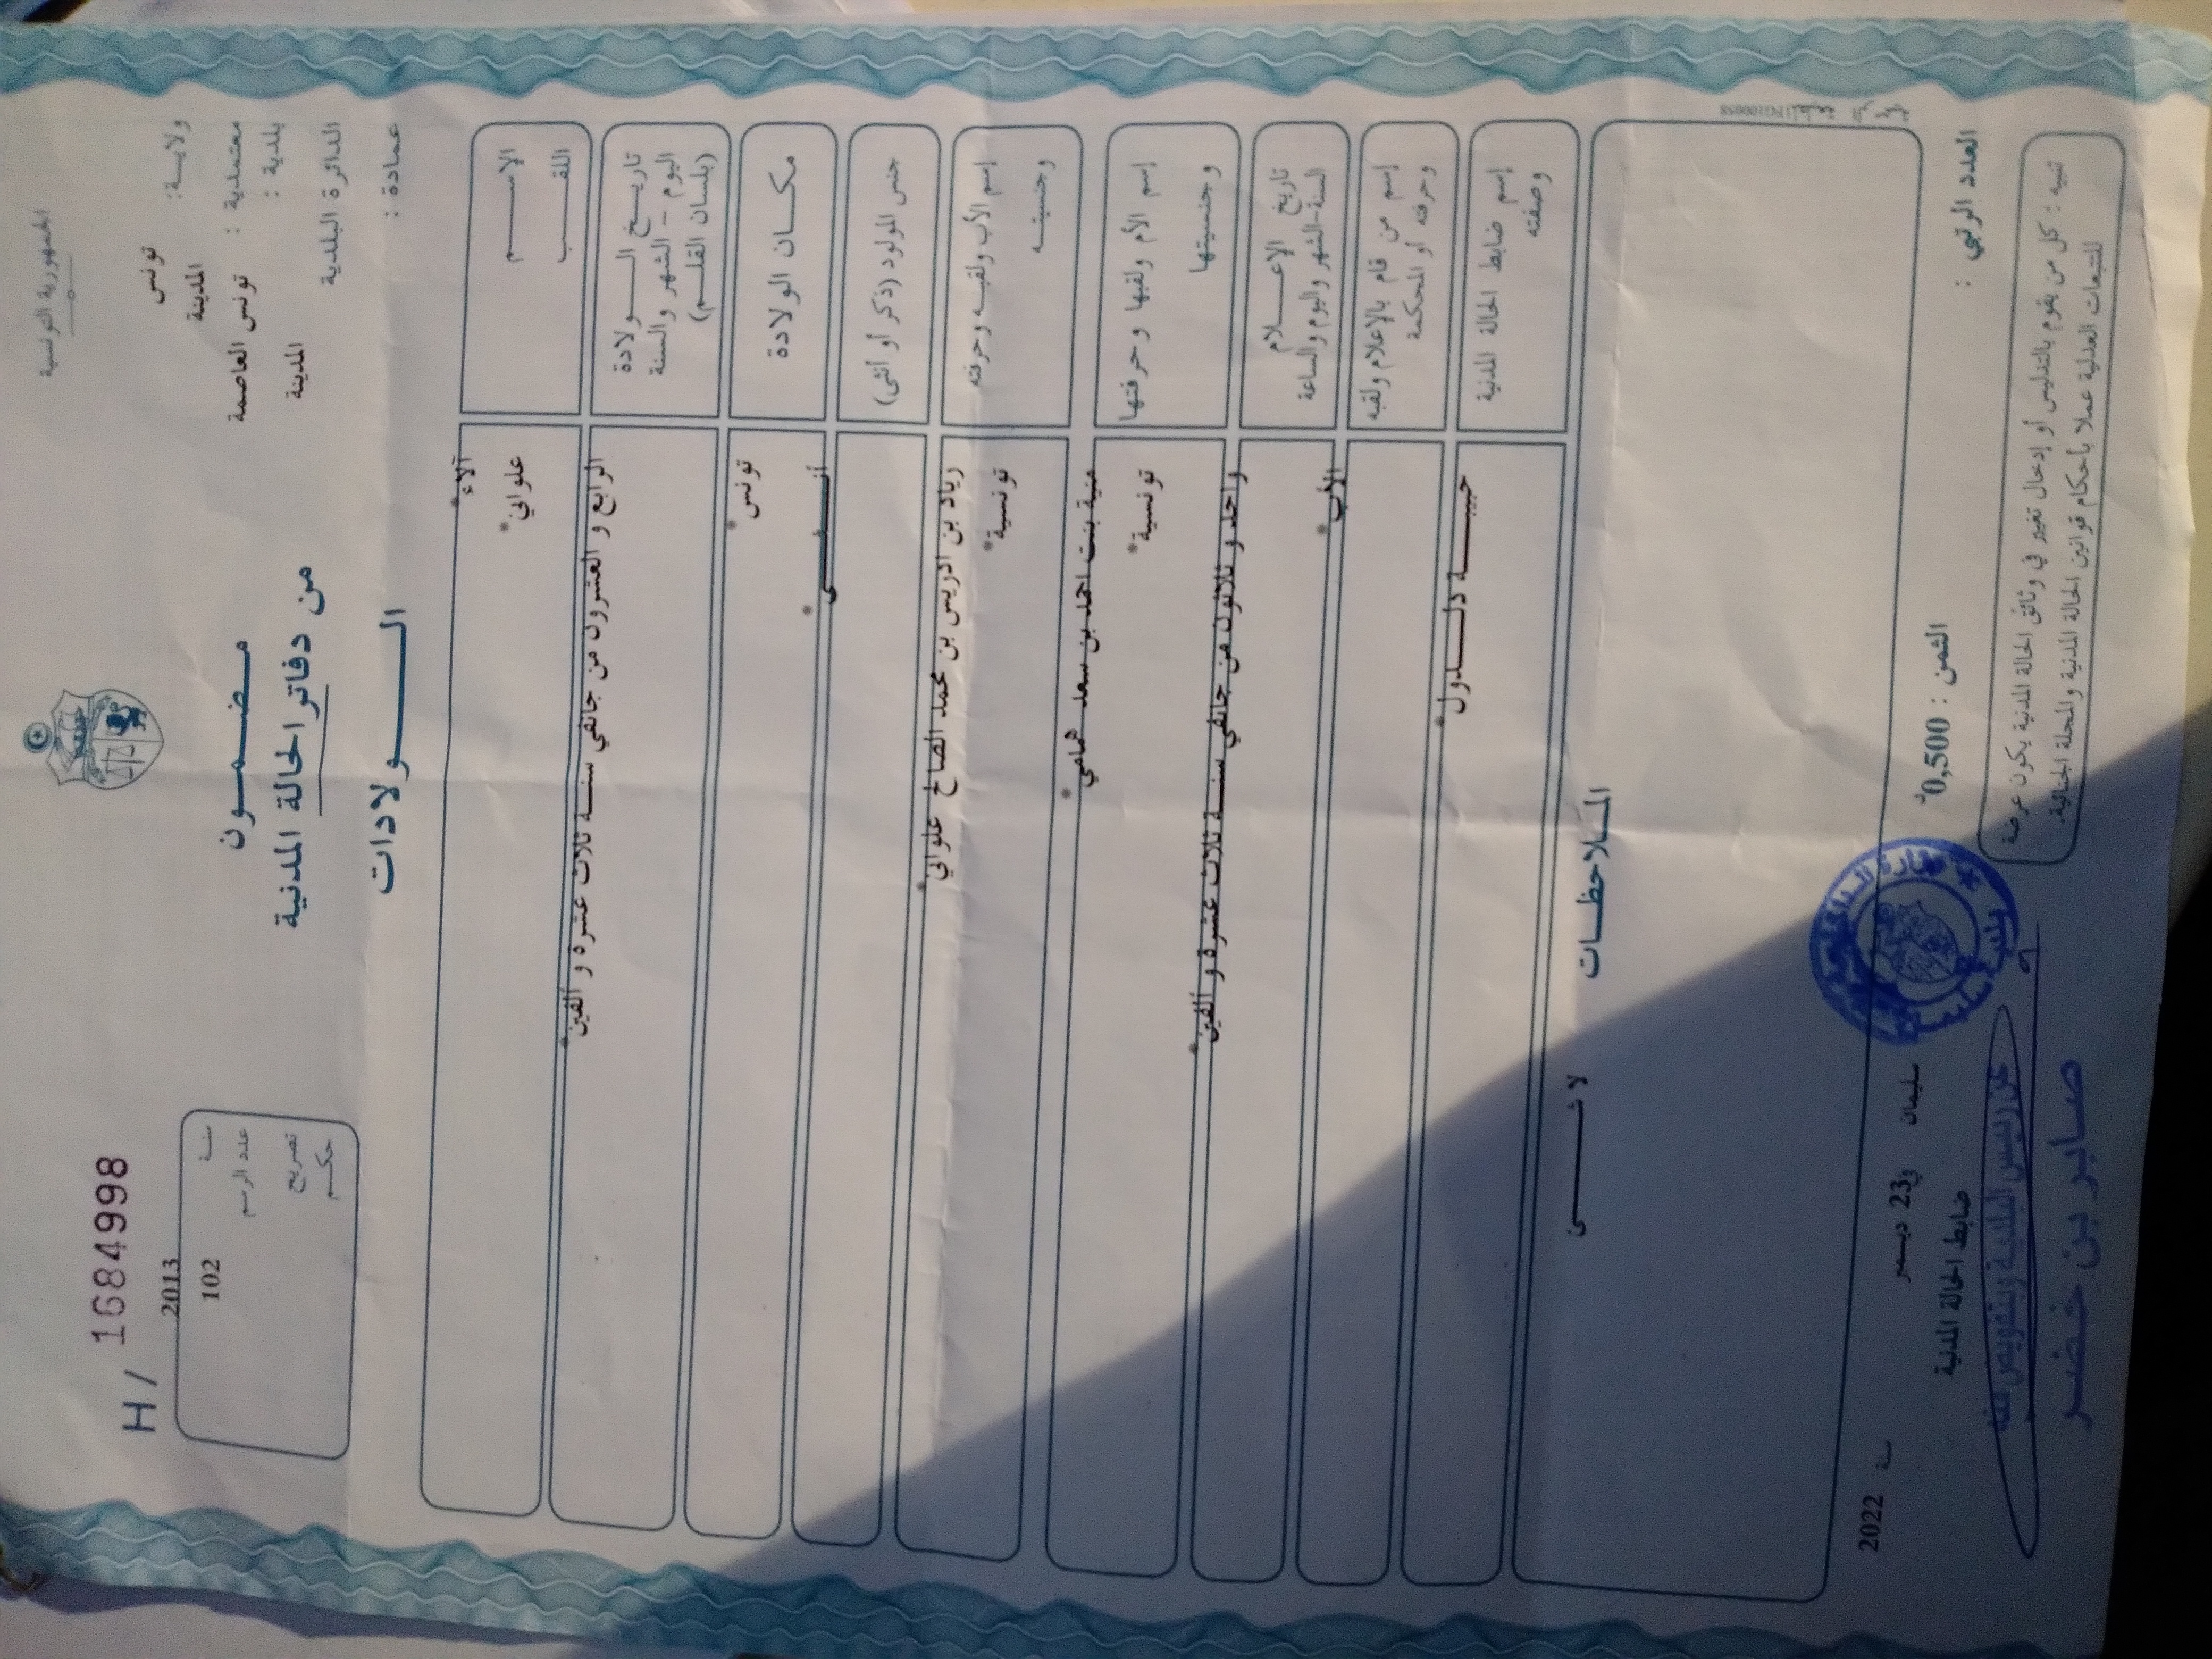 الجمهورية التونسية
ولايـــة: تونس
معتمدية : المدينة
بلدية : تونس العاصمة
الدائرة البلدية المدينة
عمادة :
مـضـمـــون
من دفاتر الحالة المدنية
الـــــولادات
H / 1684998
سنـــة 2013
عدد الرسم 102
تصريح
حكـــم
الإســــــم آلاء*
اللقـــــب علواني*
تاريـــخ الــــولادة
اليوم - الشهر والسنة
(بلسان القلـــم)
الرابع و العشرون من جانفي سنـــة ثلاث عشرة و ألفين*
مكـــان الولادة تونس*
جنس المولود (ذكر أو أنثى) أنـــــثـــــى*
إسم الأب ولقبـــه وحرفته زياد بن ادريس بن محمد الصالح علواني*
وجنسيتـــه تونسية*
إسم الأم ولقبها وحرفتها منية بنت احمد بن سعد همامي*
وجنسيتها تونسية*
تاريخ الإعــــلام
السنة-الشهر واليوم والساعة
واحد و ثلاثون من جانفي سنـــة ثلاث عشرة و ألفين*
إسم من قام بالإعلام ولقبه
وحرفته أو المحكمة
الأب*
إسم ضابط الحالة المدنية
وصفته
حبيبـــــة دلـــــدول*
المـــلاحظـــات
لا شـــــــىء
العدد الرتبي :
الثمن : 0,500د
سليمان في 23 ديسمبر سنة 2022
ضابط الحالة المدنية
عن رئيس البلدية وبتفويض منه
صابر بن خضر
تنبيه : كل من يقوم بالتدليس أو إدخال تغيير في وثائق الحالة المدنية يكون عرضة
للتتبعات العدلية عملا بأحكام قوانين الحالة المدنية والمجلة الجنائية.